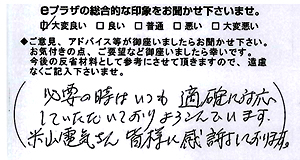 eプラザの総合的な印象をお聞かせ下さいませ。
☑大変良い □良い □普通 □悪い □大変悪い
◆ご意見、アドバイス等が御座いましたらお聞かせ下さい。
お気付きの点、ご要望など御座いましたら幸いです。
今後の反省材料として参考にさせて頂きますので、遠慮
なくご記入下さいませ。
必要の時はいつも適確に対応
していただいておりようこんでいます。
米山電気さん皆様に感謝しております。